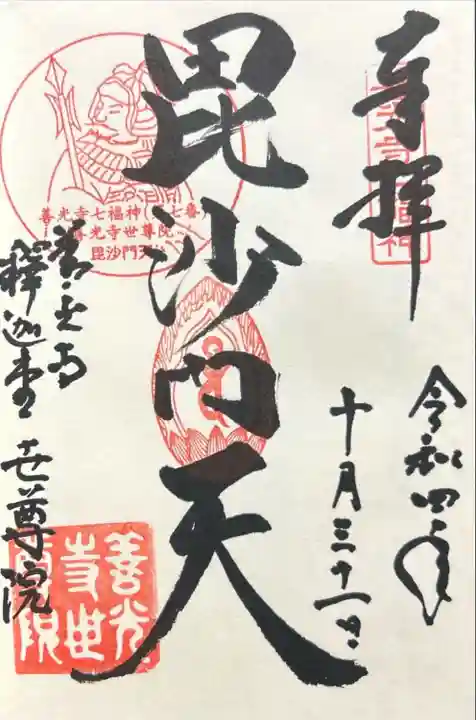 奉拝
令和四年
十月三十一日
毘沙門天
善光寺
釋迦堂 世尊院
善光寺七福神
善光寺世尊院
毘沙門天
善光
寺世
尊院